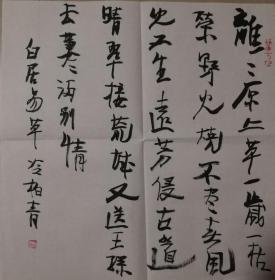 離〻原上草一歲一枯
榮野火燒不盡春風
吹又生遠芳侵古道
晴翠接荒城又送王孫
去萋〻滿別情
白居易草 冷柏青